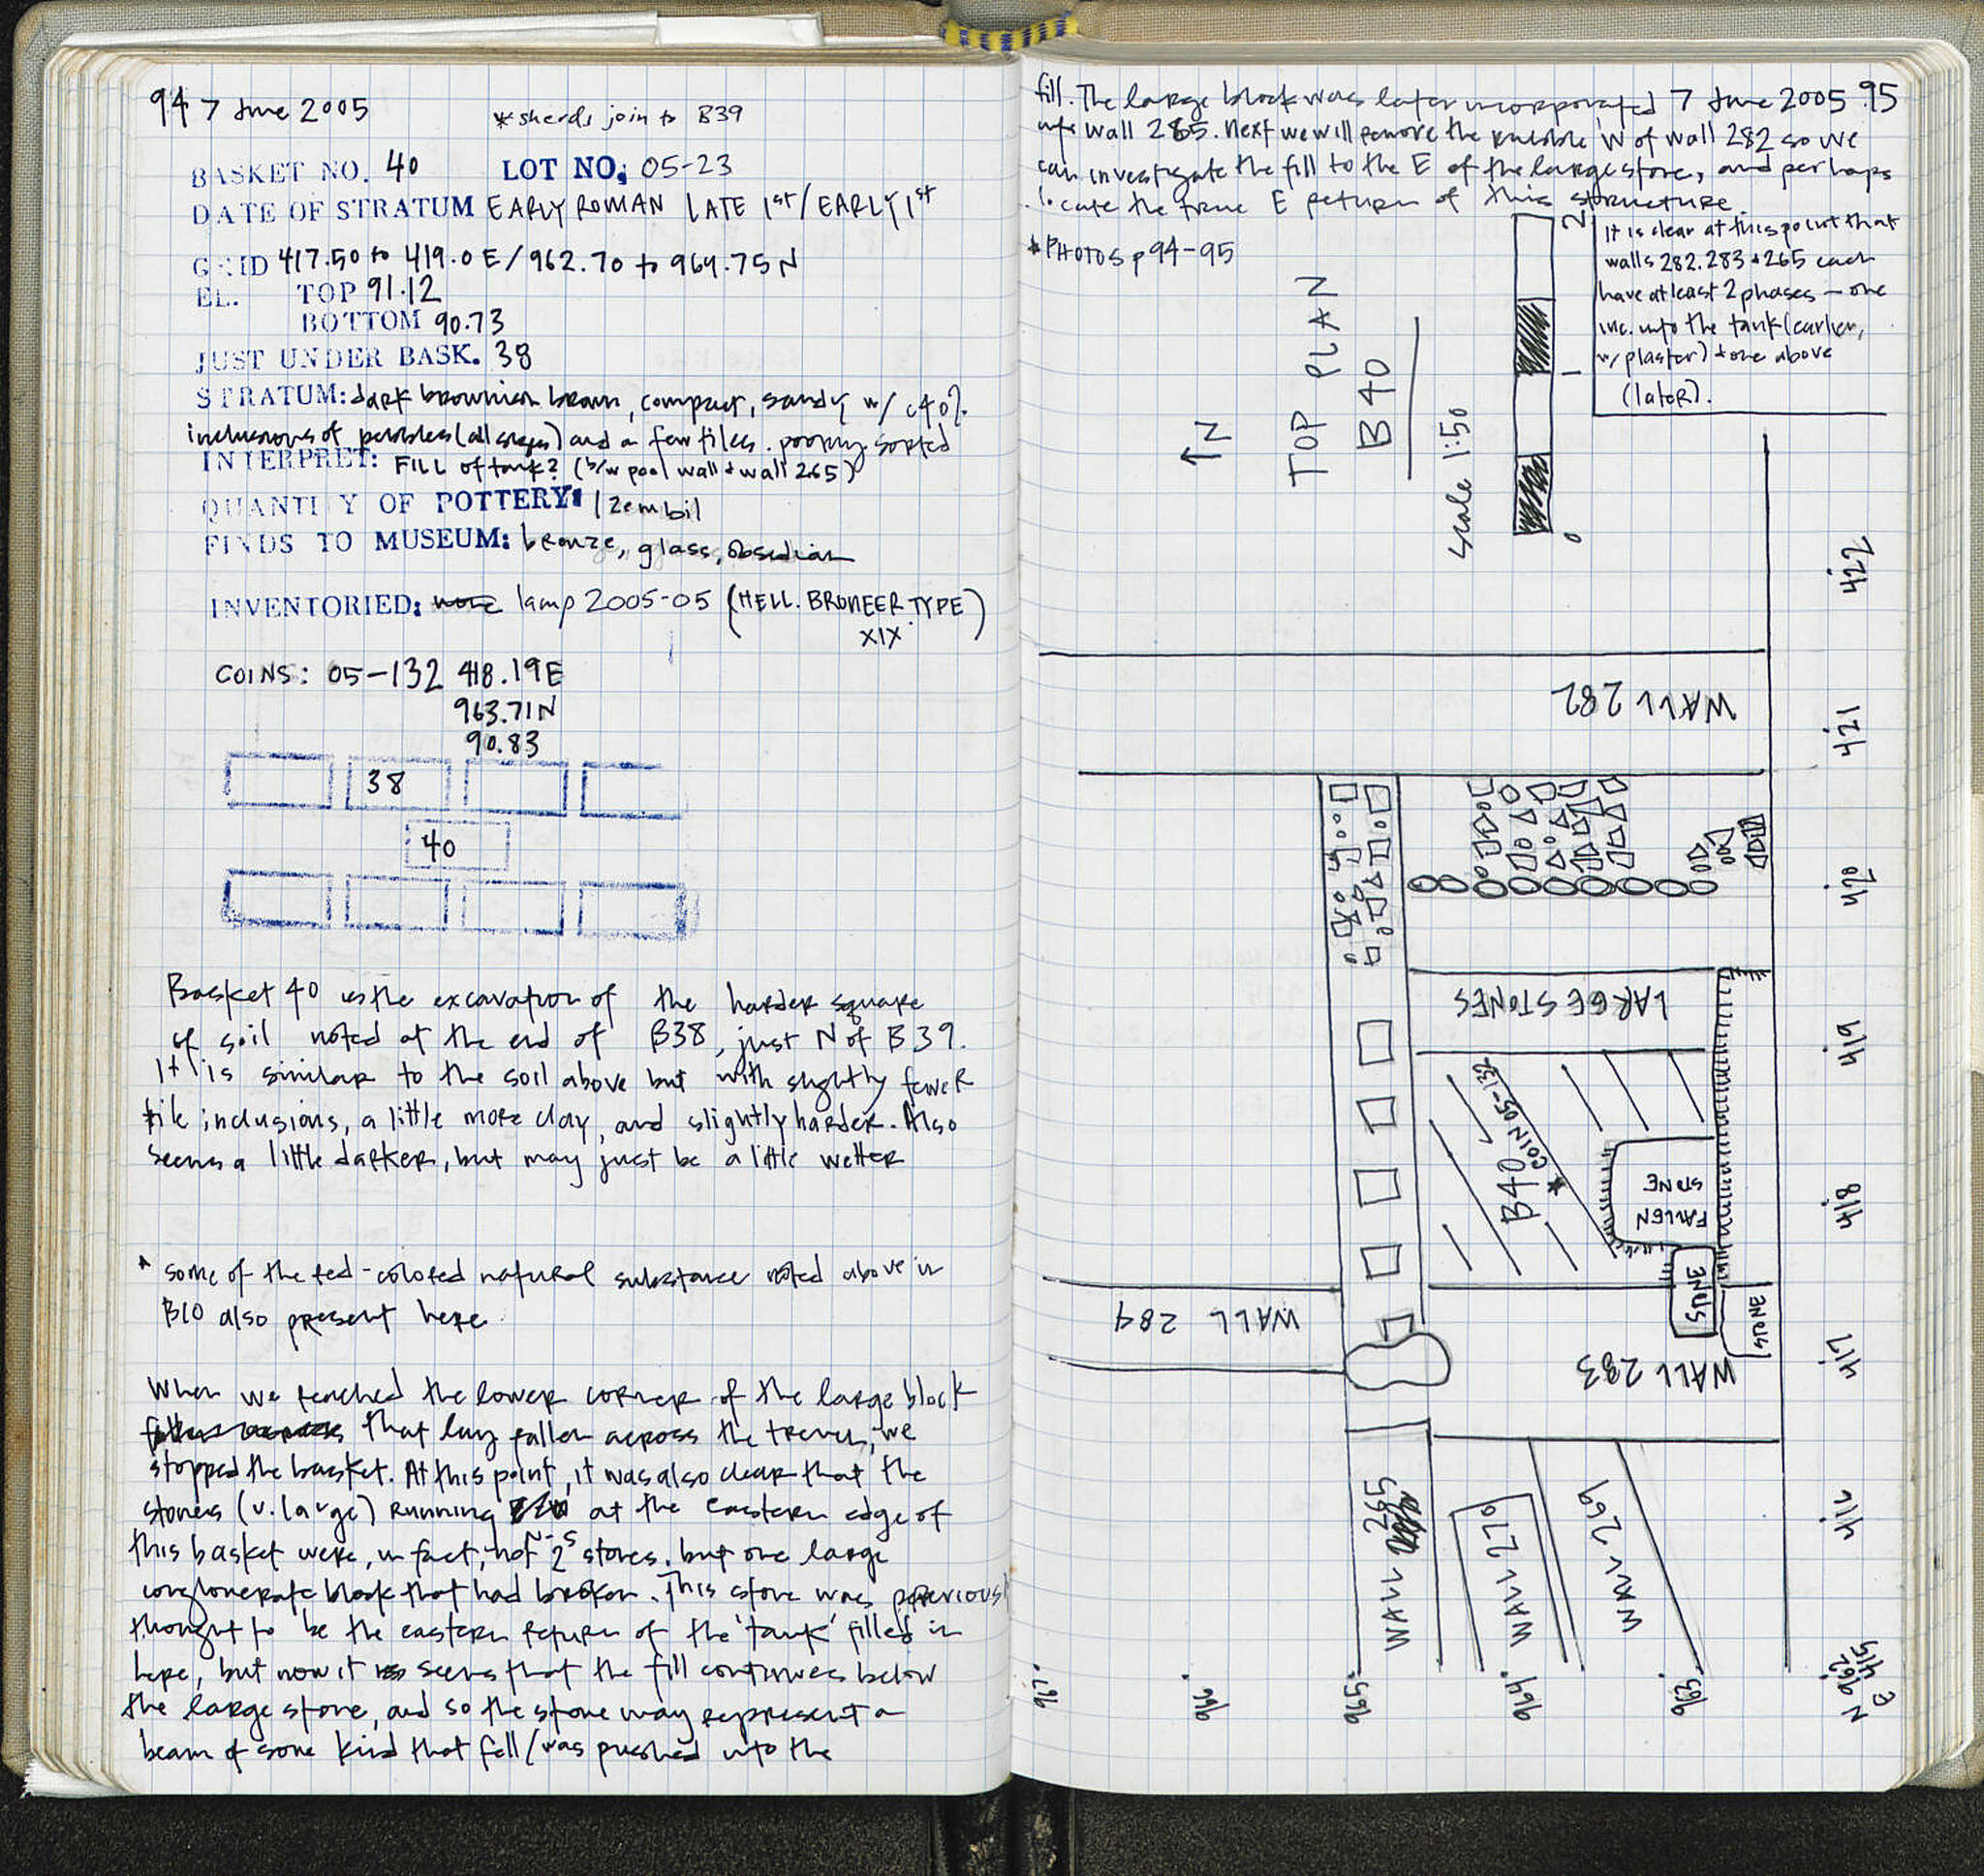 94 7 June 2005
*sherds join to B39
BASKET NO. 40 LOT NO: 05-23
DATE OF STRATUM EARLY ROMAN LATE 1st/EARLY 1st
GRID 417.50 to 419.0 E/962.70 to 964.75 N
EL. TOP 91.12
BOTTOM 90.73
JUST UNDER BASK. 38
STRATUM: dark brownish brown, compact, sandy w/ c40%
inclusions of pebbles (all sizes) and a few tiles. poorly sorted
INTERPRET: FILL of tank? (b/w pool wall + wall 265)
QUANTITY OF POTTERY: 1 zembil
FINDS TO MUSEUM: bronze, glass, obsidian
INVENTORIED: none lamp 2005-05 (HELL. BRONEER TYPE)
XIX
COINS: 05-132 418.19E
963.71N
90.83
38
40
Basket 40 is the excavation of the harder square
of soil noted at the end of B38, just N of B39.
It is similar to the soil above but with slightly fewer
tile inclusions, a little more clay, and slightly harder. Also
seems a little darker, but may just be a little wetter
* some of the red-colored natural substance noted above in
B10 also present here.
When we reached the lower corner of the large block
that lay fallen across the trench, we
stopped the basket. At this point, it was also clear that the
stones (v. large) running N-S at the eastern edge of
this basket were, in fact, not 2 stones, but one large
conglomerate block that had broken. This stone was previously
thought to be the eastern return of the 'tank' filled in
here, but now it seems that the fill continues below
the large stone, and so the stone may represent a
beam of some kind that fell/was pushed into the
fill. The large block was later incorporated 7 June 2005 95
into wall 265. Next we will remove the rubble W of wall 282 so we
can investigate the fill to the E of the large stone, and perhaps
locate the true E return of this structure.
*PHOTOS p94-95
It is clear at this point that
walls 282, 283 + 265 each
have at least 2 phases - one
inc. into the tank (earlier,
w/ plaster) + one above
(later).
N
TOP PLAN
B40
scale 1:50
0
1
2
422
WALL 282
421
420
LARGE STONES
419
COIN 05-132
B40
FALLEN
STONE
418
STONE
STONE
WALL 284
WALL 283
417
WALL 265
WALL 270
WALL 269
416
967
966
965
964
963
N 962
E 415